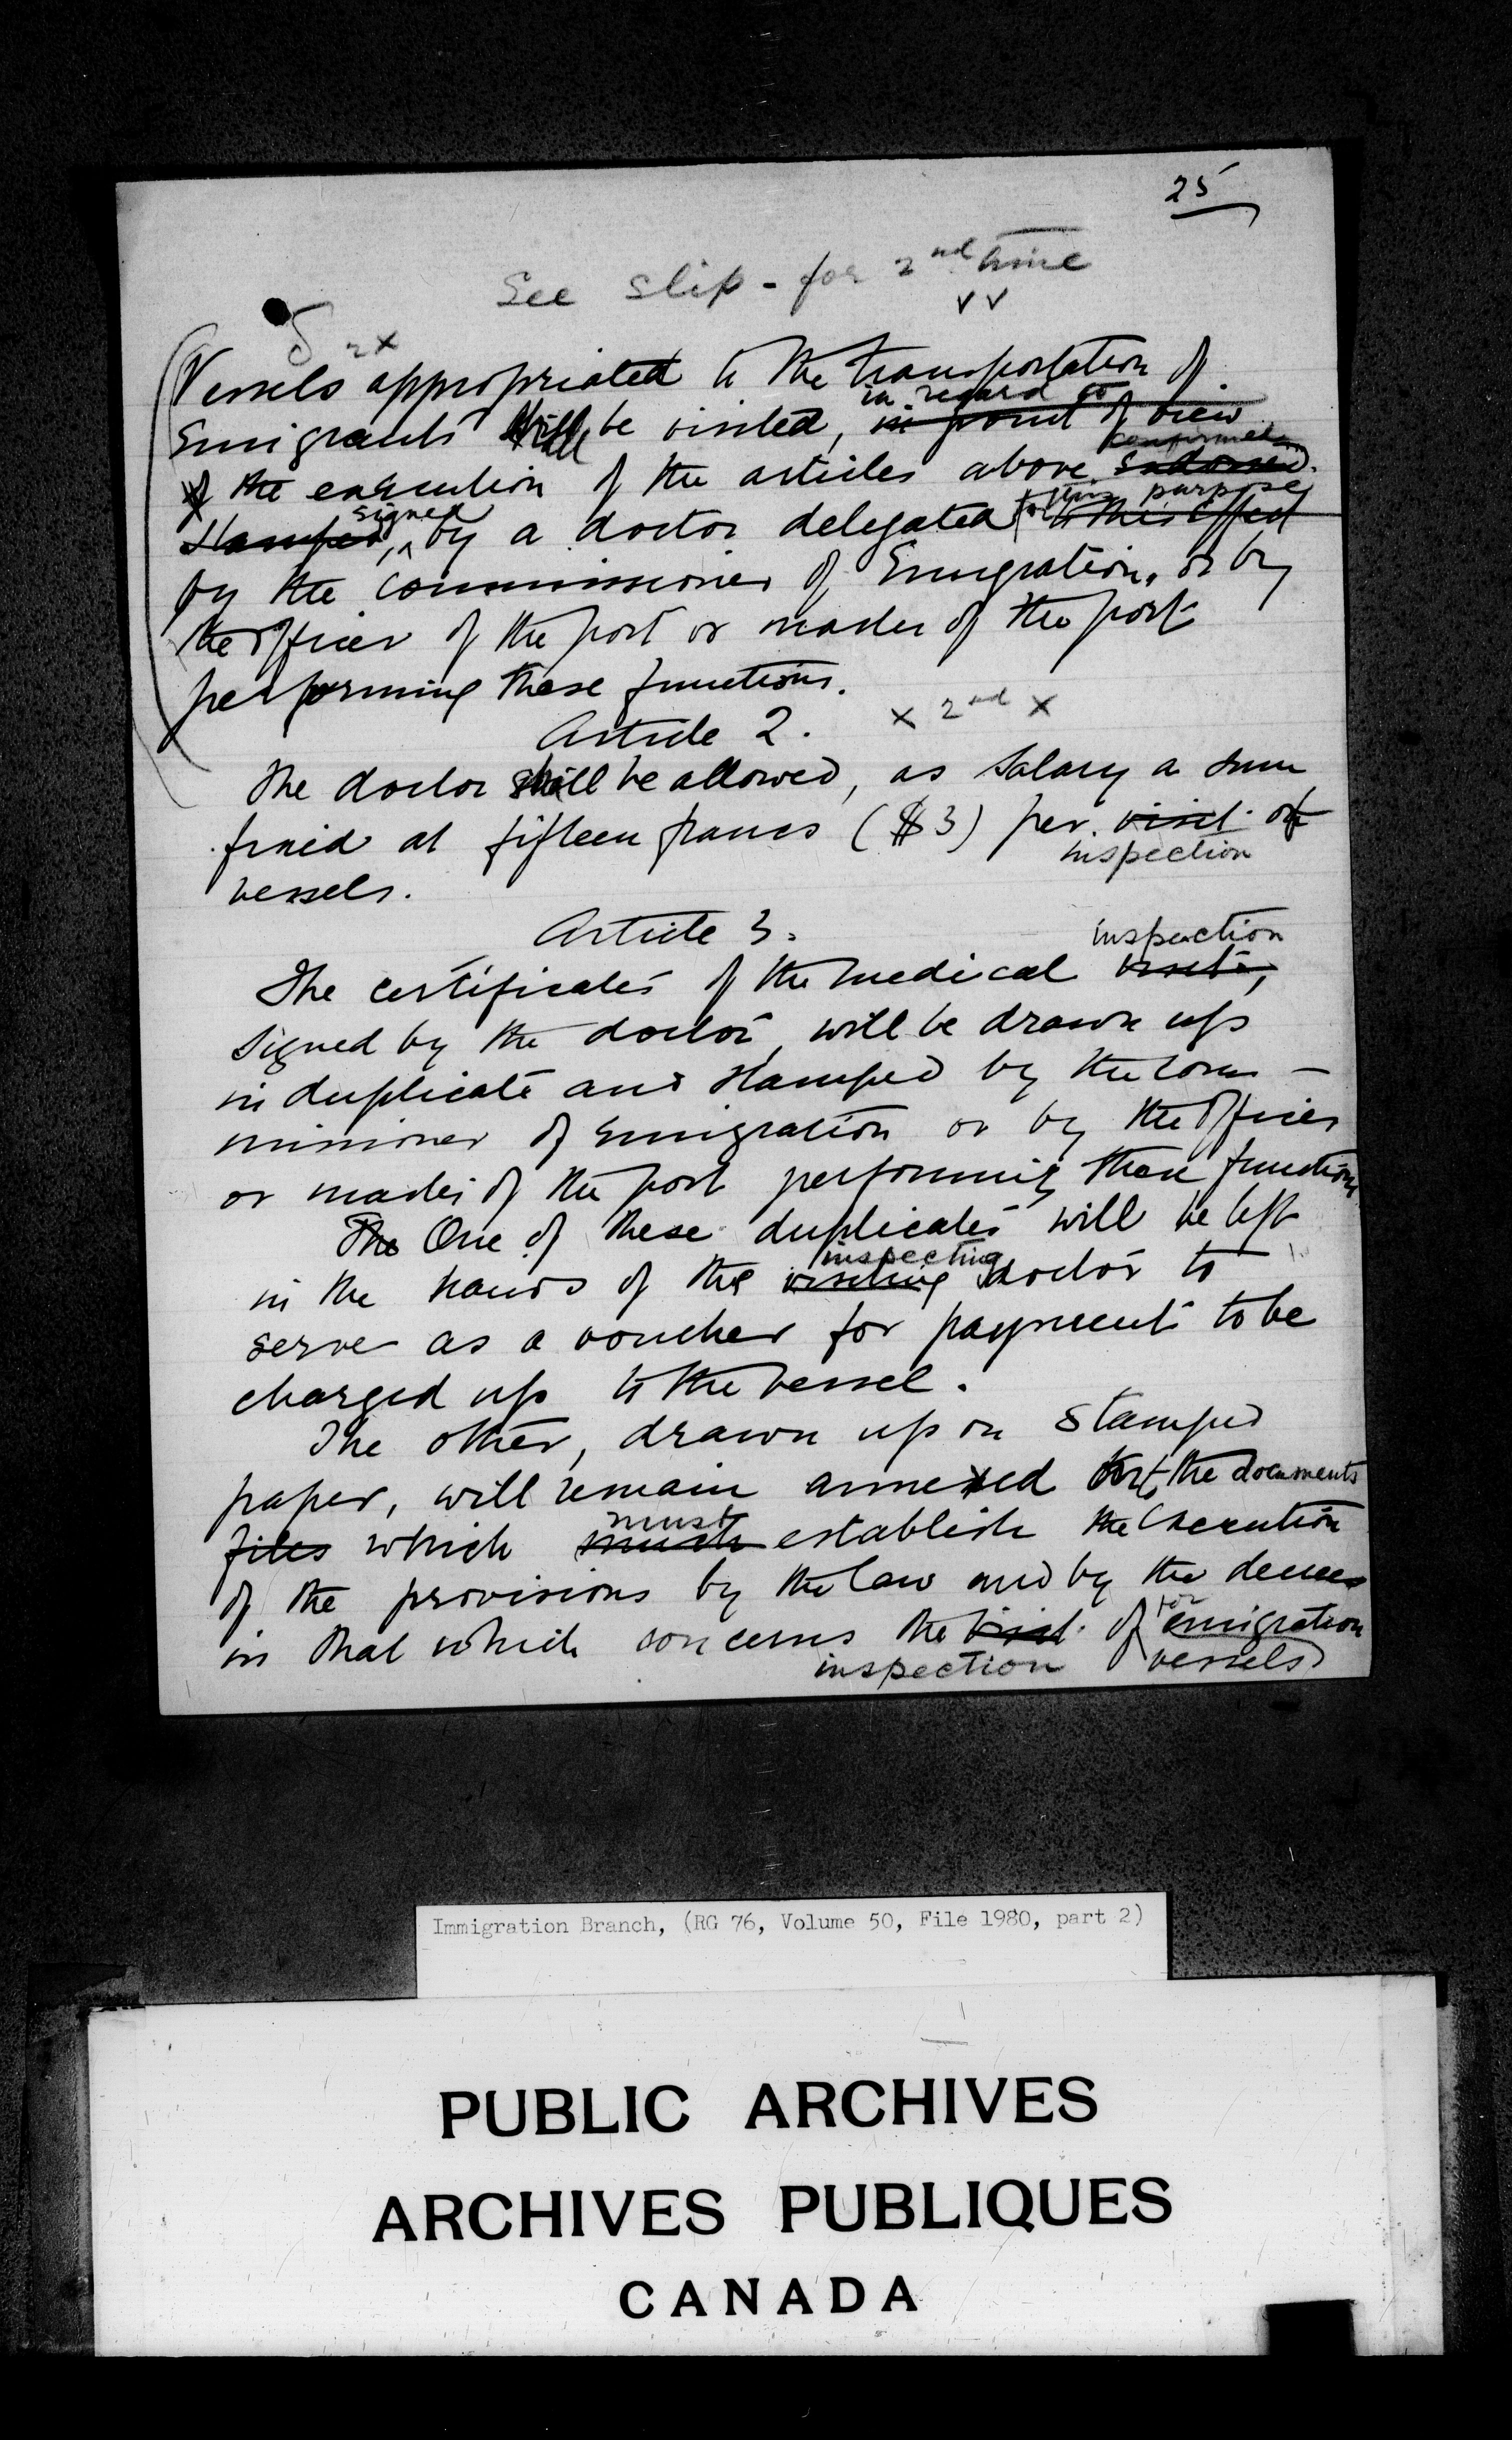 25
See slip - for 2nd time
2x
Vessels appropriated to the transportation of
in regard to
Emigrants shall be visited, in point of view
confirmed
of the execution of the articles above endorsed.
signed for this purpose
stamped, by a doctor delegated to this effect
by the Commissioner of Emigration, or by
the officer of the port or master of the port
performing these functions.
Article 2. x 2nd x
The doctor shall be allowed, as salary a sum
fixed at fifteen francs ($3) per visit of
inspection
vessels.
Article 3.
inspection
The certificates of the medical visits,
signed by the doctor, will be drawn up
in duplicate and stamped by the Com-
missioner of Emigration or by the officer
or master of the port performing these functions
The One of these duplicates will be left
inspecting
in the hands of the visiting doctor to
serve as a voucher for payment to be
charged up to the vessel.
The other, drawn up on stamped
paper, will remain annexed to the documents
must
files which must establish the execution
of the provisions by the law and by the decree
for
in that which concerns the visit of emigration
inspection vessels
Immigration Branch, (RG 76, Volume 50, File 1980, part 2)
PUBLIC ARCHIVES
ARCHIVES PUBLIQUES
CANADA